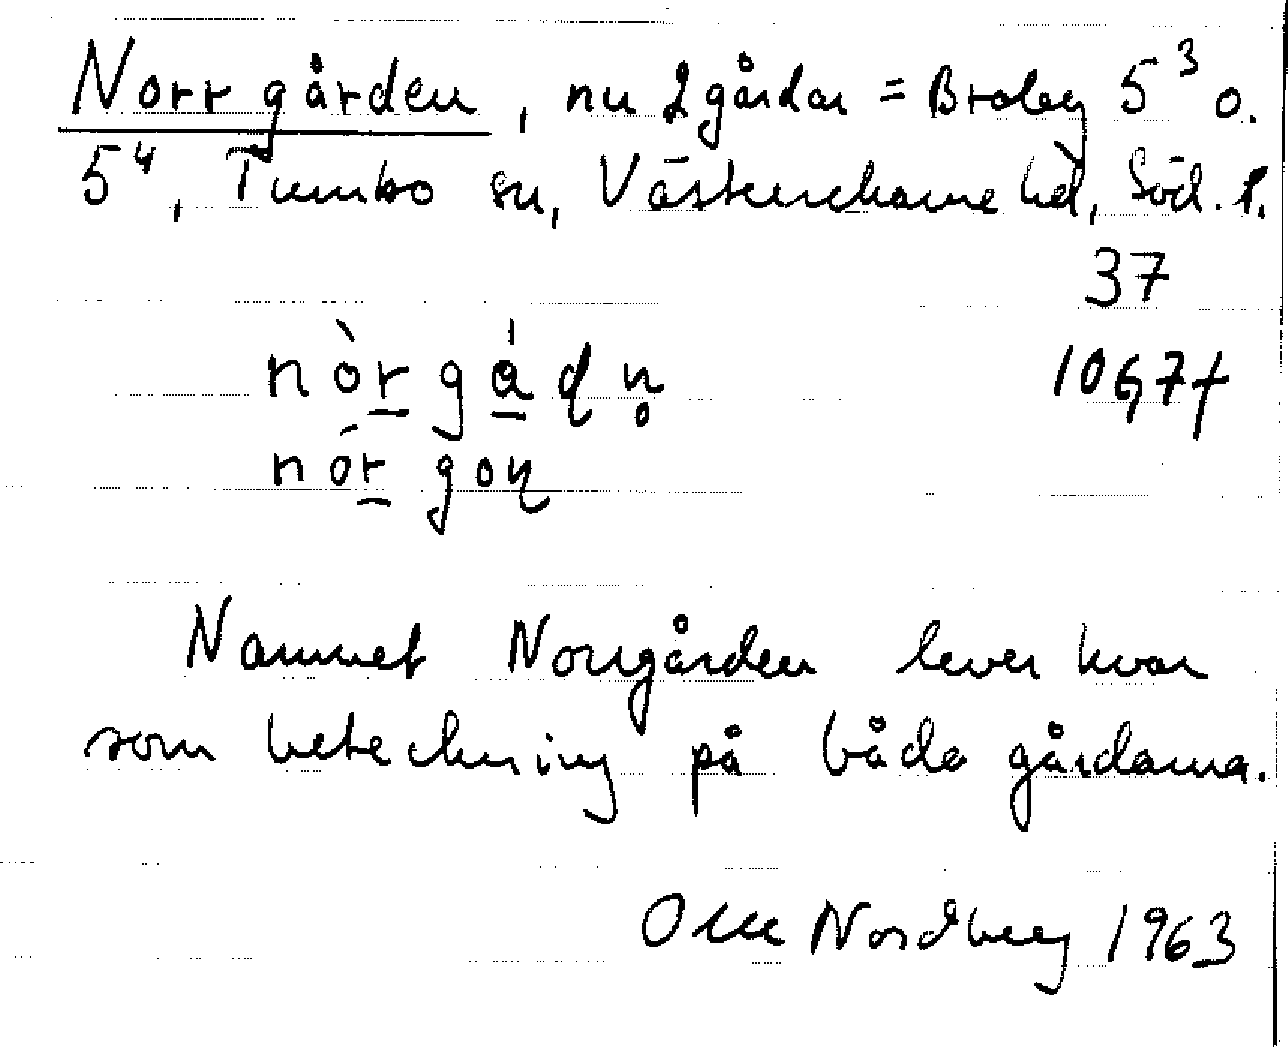 Norrgården, nu 2 gårdar = Broby 5³ o.
5⁴, Tumbo sn, Västerrekarne hd, Söd. l.
37
10G7f
nòrgådn̥
nórgon
Namnet Norrgården lever kvar
som beteckning på båda gårdarna.
Olle Nordberg 1963